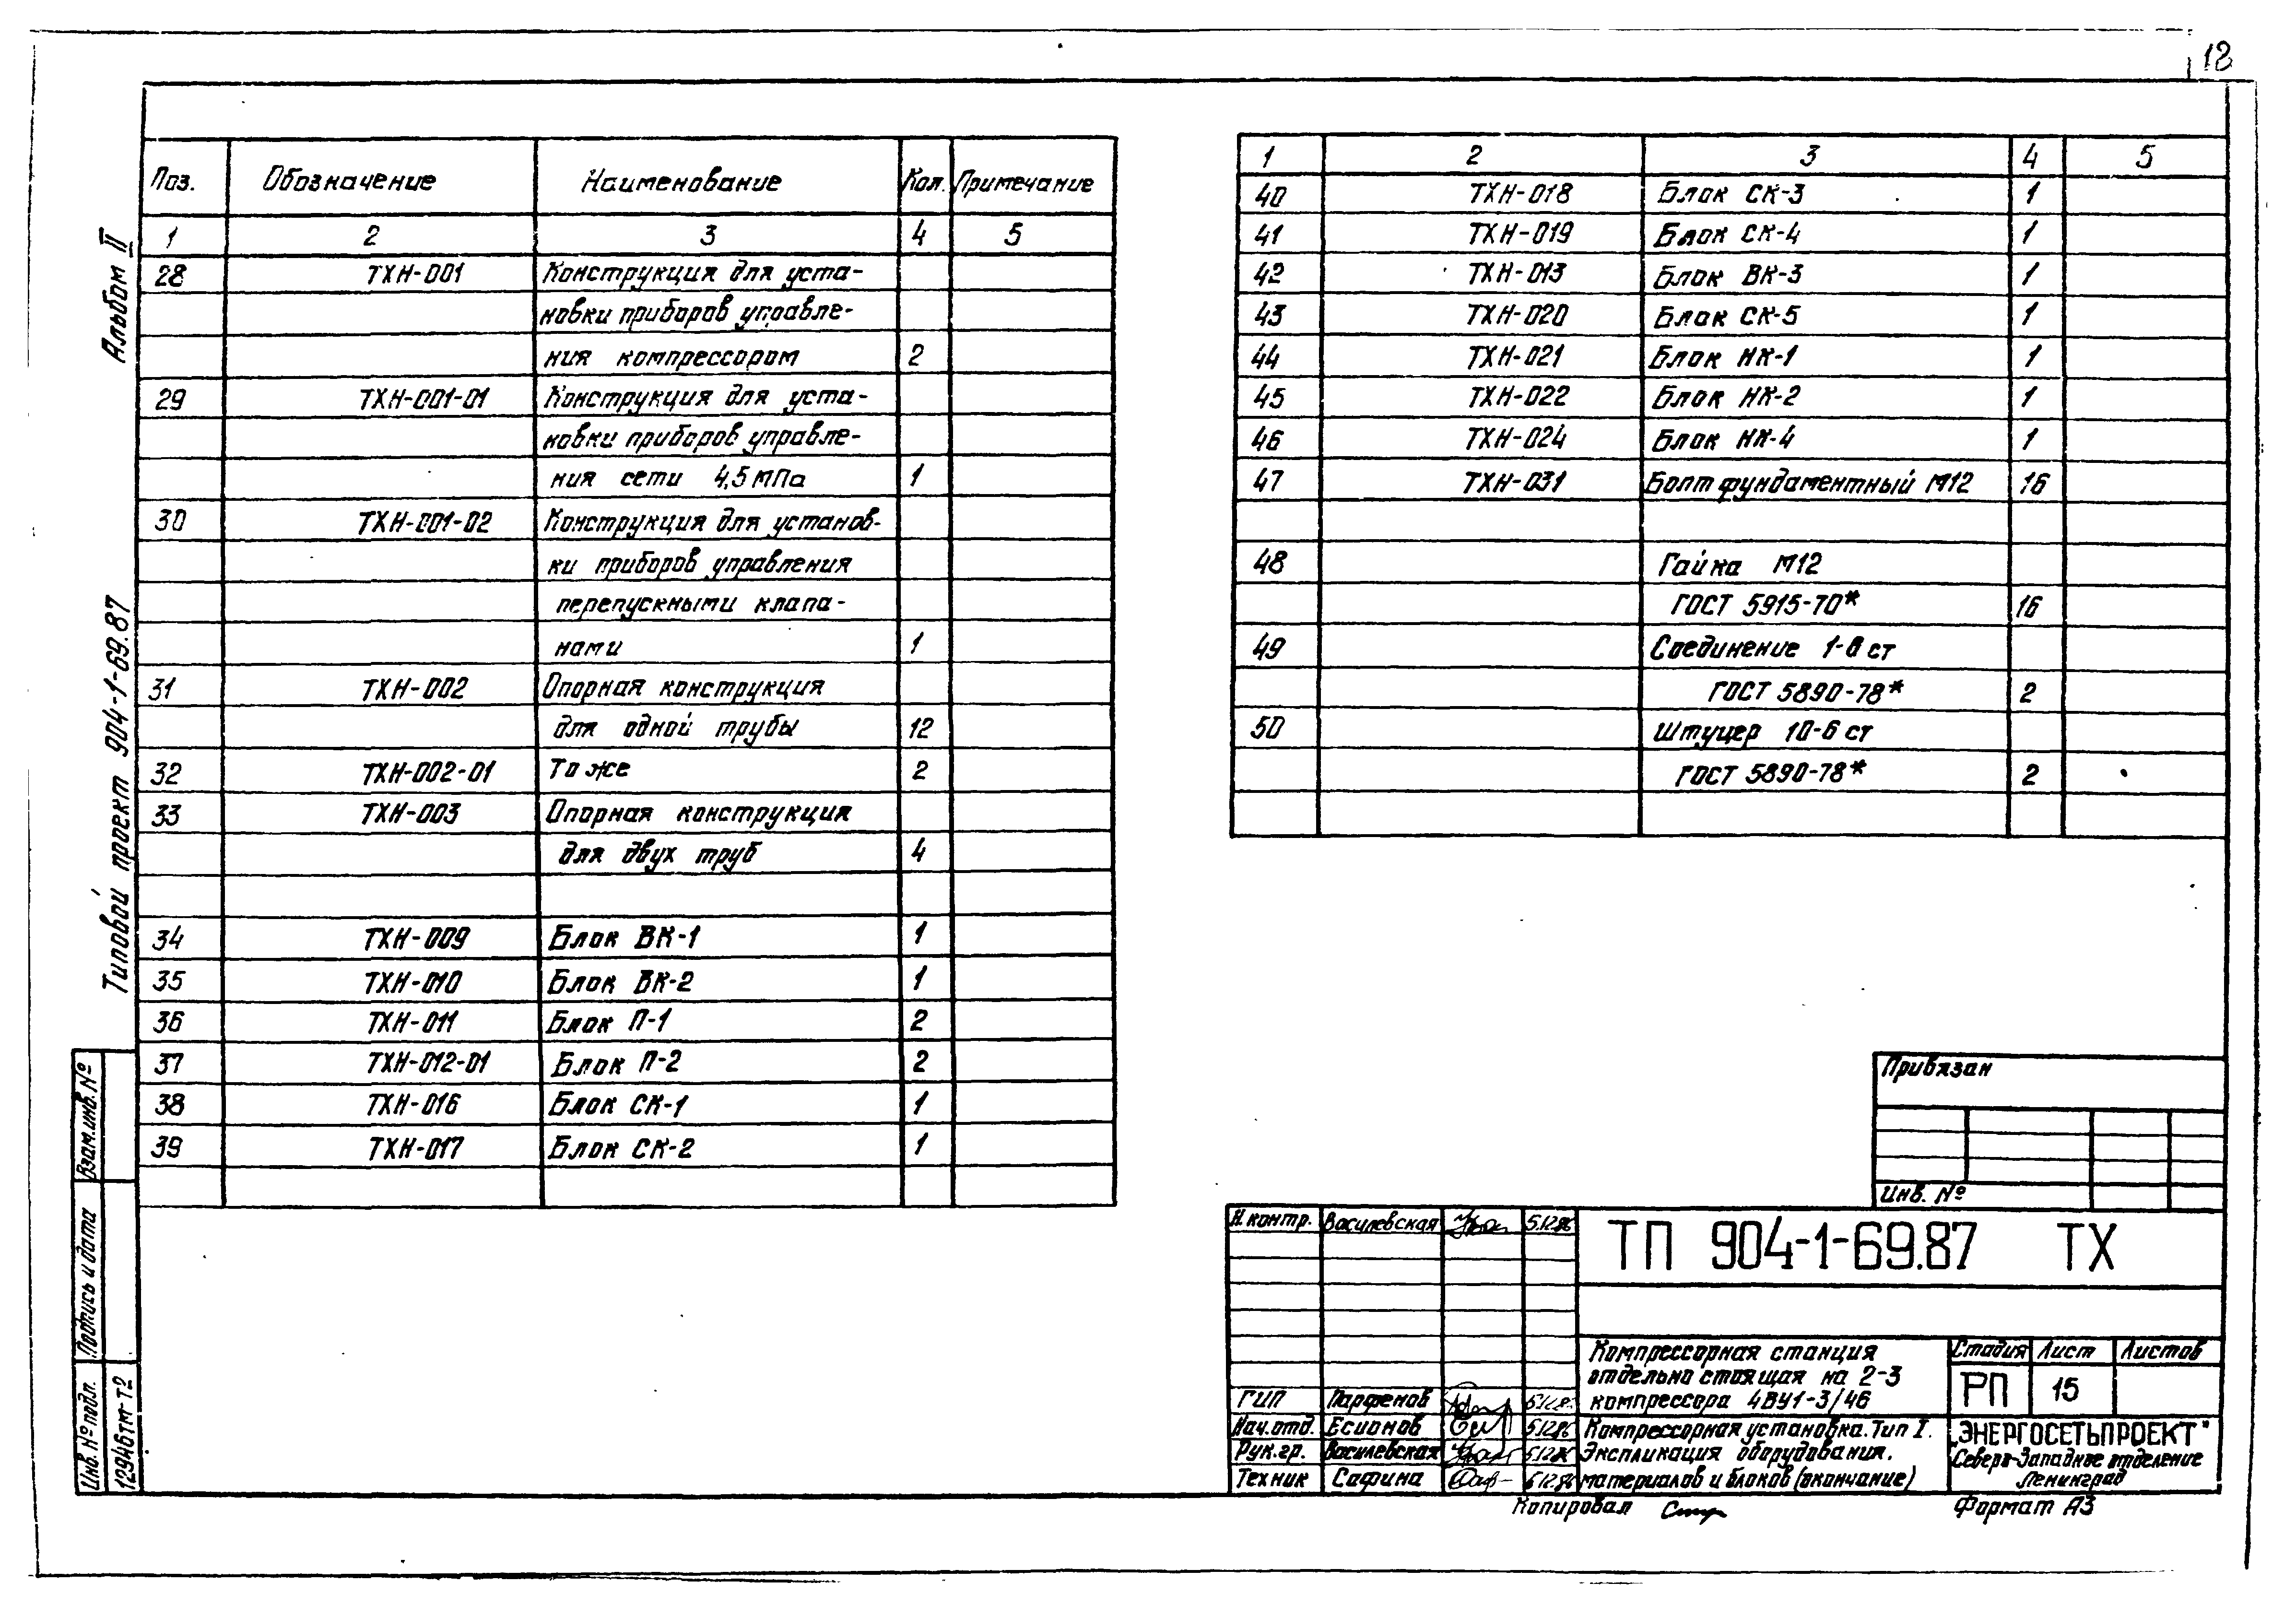 18
Альбом II
Типовой проект 904-1-69.87
Поз. Обозначение Наименование Кол. Примечание
1 2 3 4 5
28 ТХН-001 Конструкция для уста-
новки приборов управле-
ния компрессором 2
29 ТХН-001-01 Конструкция для уста-
новки приборов управле-
ния сети 4,5 МПа 1
30 ТХН-001-02 Конструкция для установ-
ки приборов управления
перепускными клапа-
нами 1
31 ТХН-002 Опорная конструкция
для одной трубы 12
32 ТХН-002-01 То же 2
33 ТХН-003 Опорная конструкция
для двух труб 4
34 ТХН-009 Блок ВК-1 1
35 ТХН-010 Блок ВК-2 1
36 ТХН-011 Блок П-1 2
37 ТХН-012-01 Блок П-2 2
38 ТХН-016 Блок СК-1 1
39 ТХН-017 Блок СК-2 1
1 2 3 4 5
40 ТХН-018 Блок СК-3 1
41 ТХН-019 Блок СК-4 1
42 ТХН-013 Блок ВК-3 1
43 ТХН-020 Блок СК-5 1
44 ТХН-021 Блок НК-1 1
45 ТХН-022 Блок НК-2 1
46 ТХН-024 Блок НК-4 1
47 ТХН-031 Болт фундаментный М12 16
48 Гайка М12
ГОСТ 5915-70* 16
49 Соединение 1-6 ст
ГОСТ 5890-78* 2
50 Штуцер 10-6 ст
ГОСТ 5890-78* 2
Привязан
Инв. №
Н контр. Василевская 5.12.86
ТП 904-1-69.87 ТХ
Компрессорная станция
отдельно стоящая на 2-3
компрессора 4ВУ1-3/46
Стадия Лист Листов
РП 15
ГИП Парфенов
Нач. отд. Есионов 5.12.86
Рук. гр. Василевская 5.12.86
Техник Сафина 5.12.86
Компрессорная установка. Тип I.
Экспликация оборудования,
материалов и блоков (окончание)
„ЭНЕРГОСЕТЬПРОЕКТ"
Северо-Западное отделение
Ленинград
Копировал
Формат А3
Взам. инв. №
Подпись и дата
Инв. № подл.
12946тм-т2